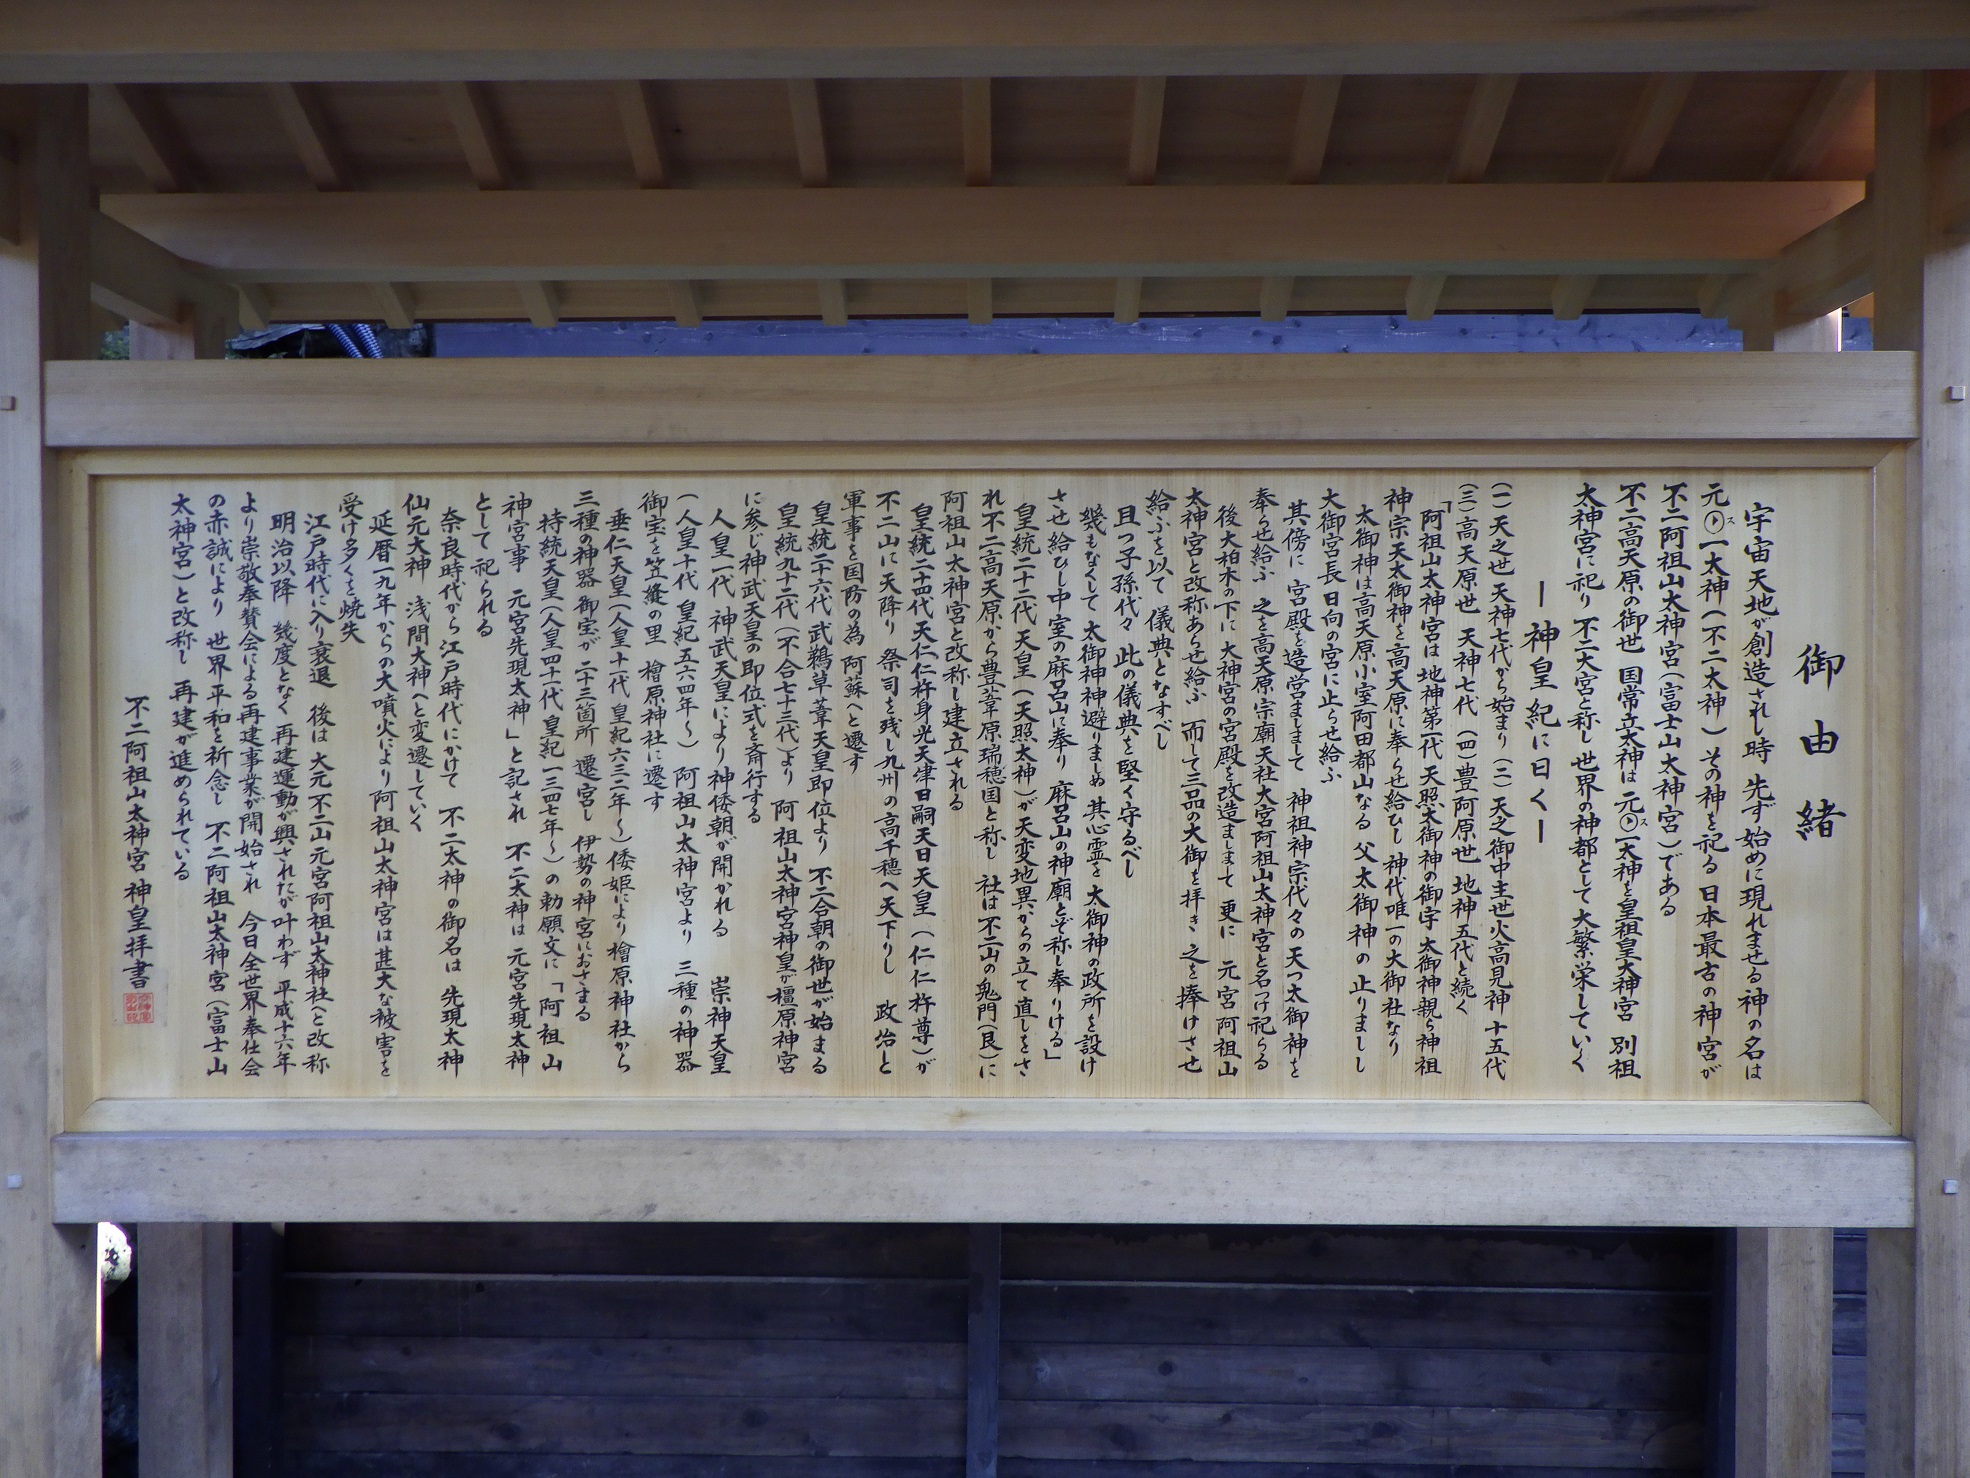 御由緒
宇宙天地が創造されし時 先ず始めに現れませる神の名は
元一太神(不二太神) その神を祀る 日本最古の神宮が
不二阿祖山太神宮(富士山太神宮)である
不二高天原の御世 国常立太神は元一太神を皇祖皇太神宮 別祖
太神宮に祀り 不二大宮と称し 世界の神都として大繁栄していく
ー神皇紀に曰くー
(一)天之世 天神七代から始まり (二)天之御中主世火高見神十五代
(三)高天原世 天神七代 (四)豊阿原世 地神五代と続く
「阿祖山太神宮は 地神第一代 天照太御神の御宇 太御神親ら神祖
神宗天太御神を高天原に奉らせ給ひし 神代唯一の大御社なり
太御神は高天原小室阿田都山なる 父太御神の 止りましし
大御宮長日向の宮に止らせ給ふ
其傍に 宮殿を造営ましまして 神祖神宗代々の天つ太御神を
奉らせ給ふ 之を高天原宗廟天社大宮阿祖山太神宮と名つけ祀らる
後大柏木の下に 大神宮の宮殿を改造ましまして 更に 元宮阿祖山
太神宮と改称あらせ給ふ 而して三品の大御を拝き 之を捧けさせ
給ふを以て 儀典となすべし
且つ子孫代々 此の儀典を堅く守るべし
幾もなくして 太御神神避りましぬ 其心霊を 太御神の政所を設け
させ給ひし中室の麻呂山に奉り 麻呂山の神廟とぞ称し奉りける」
皇統二十二代天皇(天照太神)が天変地異からの立て直しをさ
れ不二高天原から豊葦原瑞穂国と称し 社は不二山の鬼門(艮)に
阿祖山太神宮と改称し建立される
皇統二十四代天仁仁杵身光天津日嗣天日天皇(仁仁杵尊)が
不二山に天降り 祭司を残し九州の高千穂へ天下りし 政治と
軍事を国防の為 阿蘇へと遷す
皇統二十六代 武鵜草葺天皇即位より 不二合朝の御世が始まる
皇統九十二代(不合七十三代)より 阿祖山太神宮神皇が橿原神宮
に参じ神武天皇の即位式を斎行する
人皇一代 神武天皇により神倭朝が開かれる 崇神天皇
(人皇十代 皇紀五六四年〜) 阿祖山太神宮より 三種の神器
御宝を笠縫の里 檜原神社に遷す
垂仁天皇(人皇十一代 皇紀六三二年〜)倭姫により檜原神社から
三種の神器 御宝が 二十三箇所 遷宮し 伊勢の神宮におさまる
持統天皇(人皇四十一代 皇紀一三四七年〜)の勅願文に「阿祖山
神宮事 元宮先現太神」と記され 不二太神は 元宮先現太神
として祀られる
奈良時代から江戸時代にかけて 不二太神の御名は 先現太神
仙元大神 浅間大神へと変遷していく
延暦一九年からの大噴火により阿祖山太神宮は甚大な被害を
受け多くを焼失
江戸時代に入り衰退 後は 大元不二山元宮阿祖山太神社へと改称
明治以降 幾度となく再建運動が興されたが叶わず 平成十六年
より崇敬奉賛会による再建事業が開始され 今日全世界奉仕会
の赤誠により 世界平和を祈念し 不二阿祖山太神宮(富士山
太神宮)と改称し 再建が進められている
不二阿祖山太神宮 神皇拝書